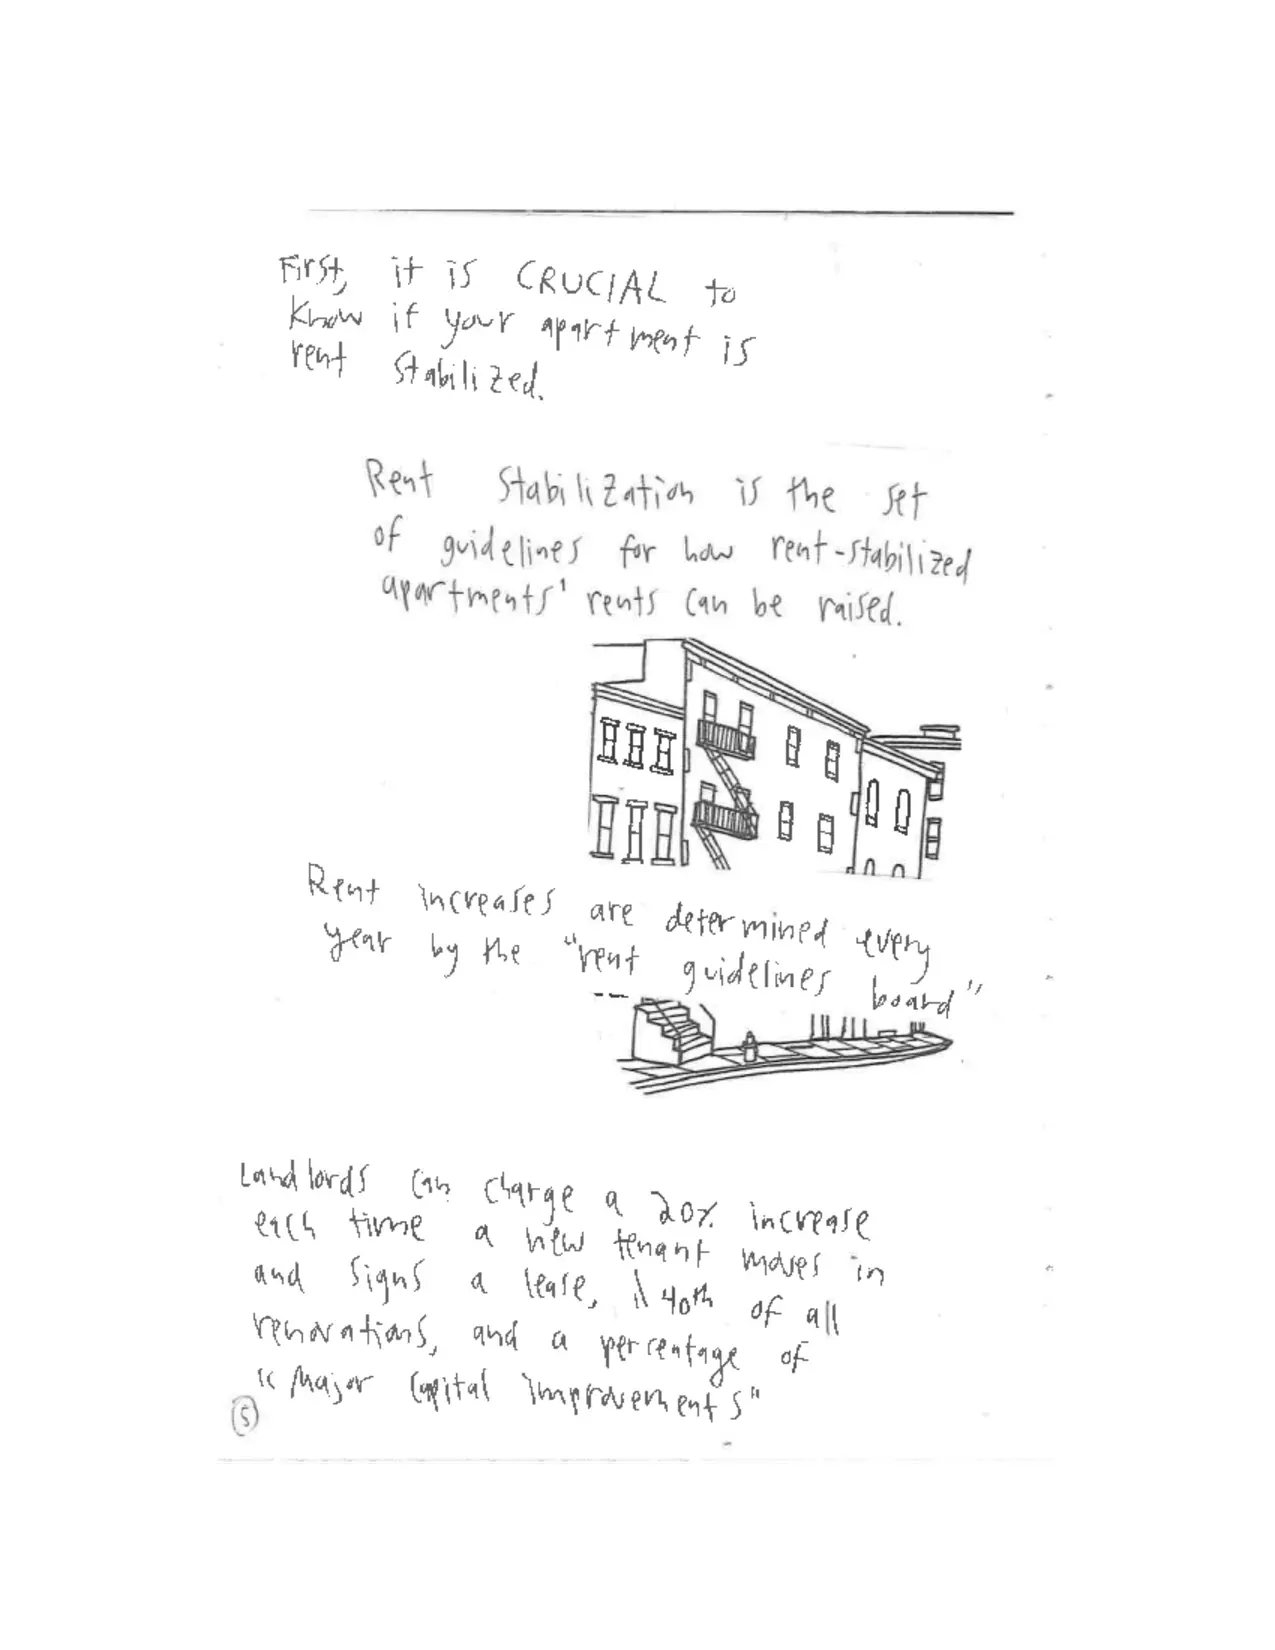 First, it is CRUCIAL to
know if your apartment is
rent stabilized.
Rent Stabilization is the set
of guidelines for how rent-stabilized
apartments' rents can be raised.
Rent increases are determined every
year by the "rent guidelines board"
Landlords can charge a 20% increase
each time a new tenant moves in
and signs a lease, 40th of all
renovations, and a percentage of
"Major Capital Improvements"
5